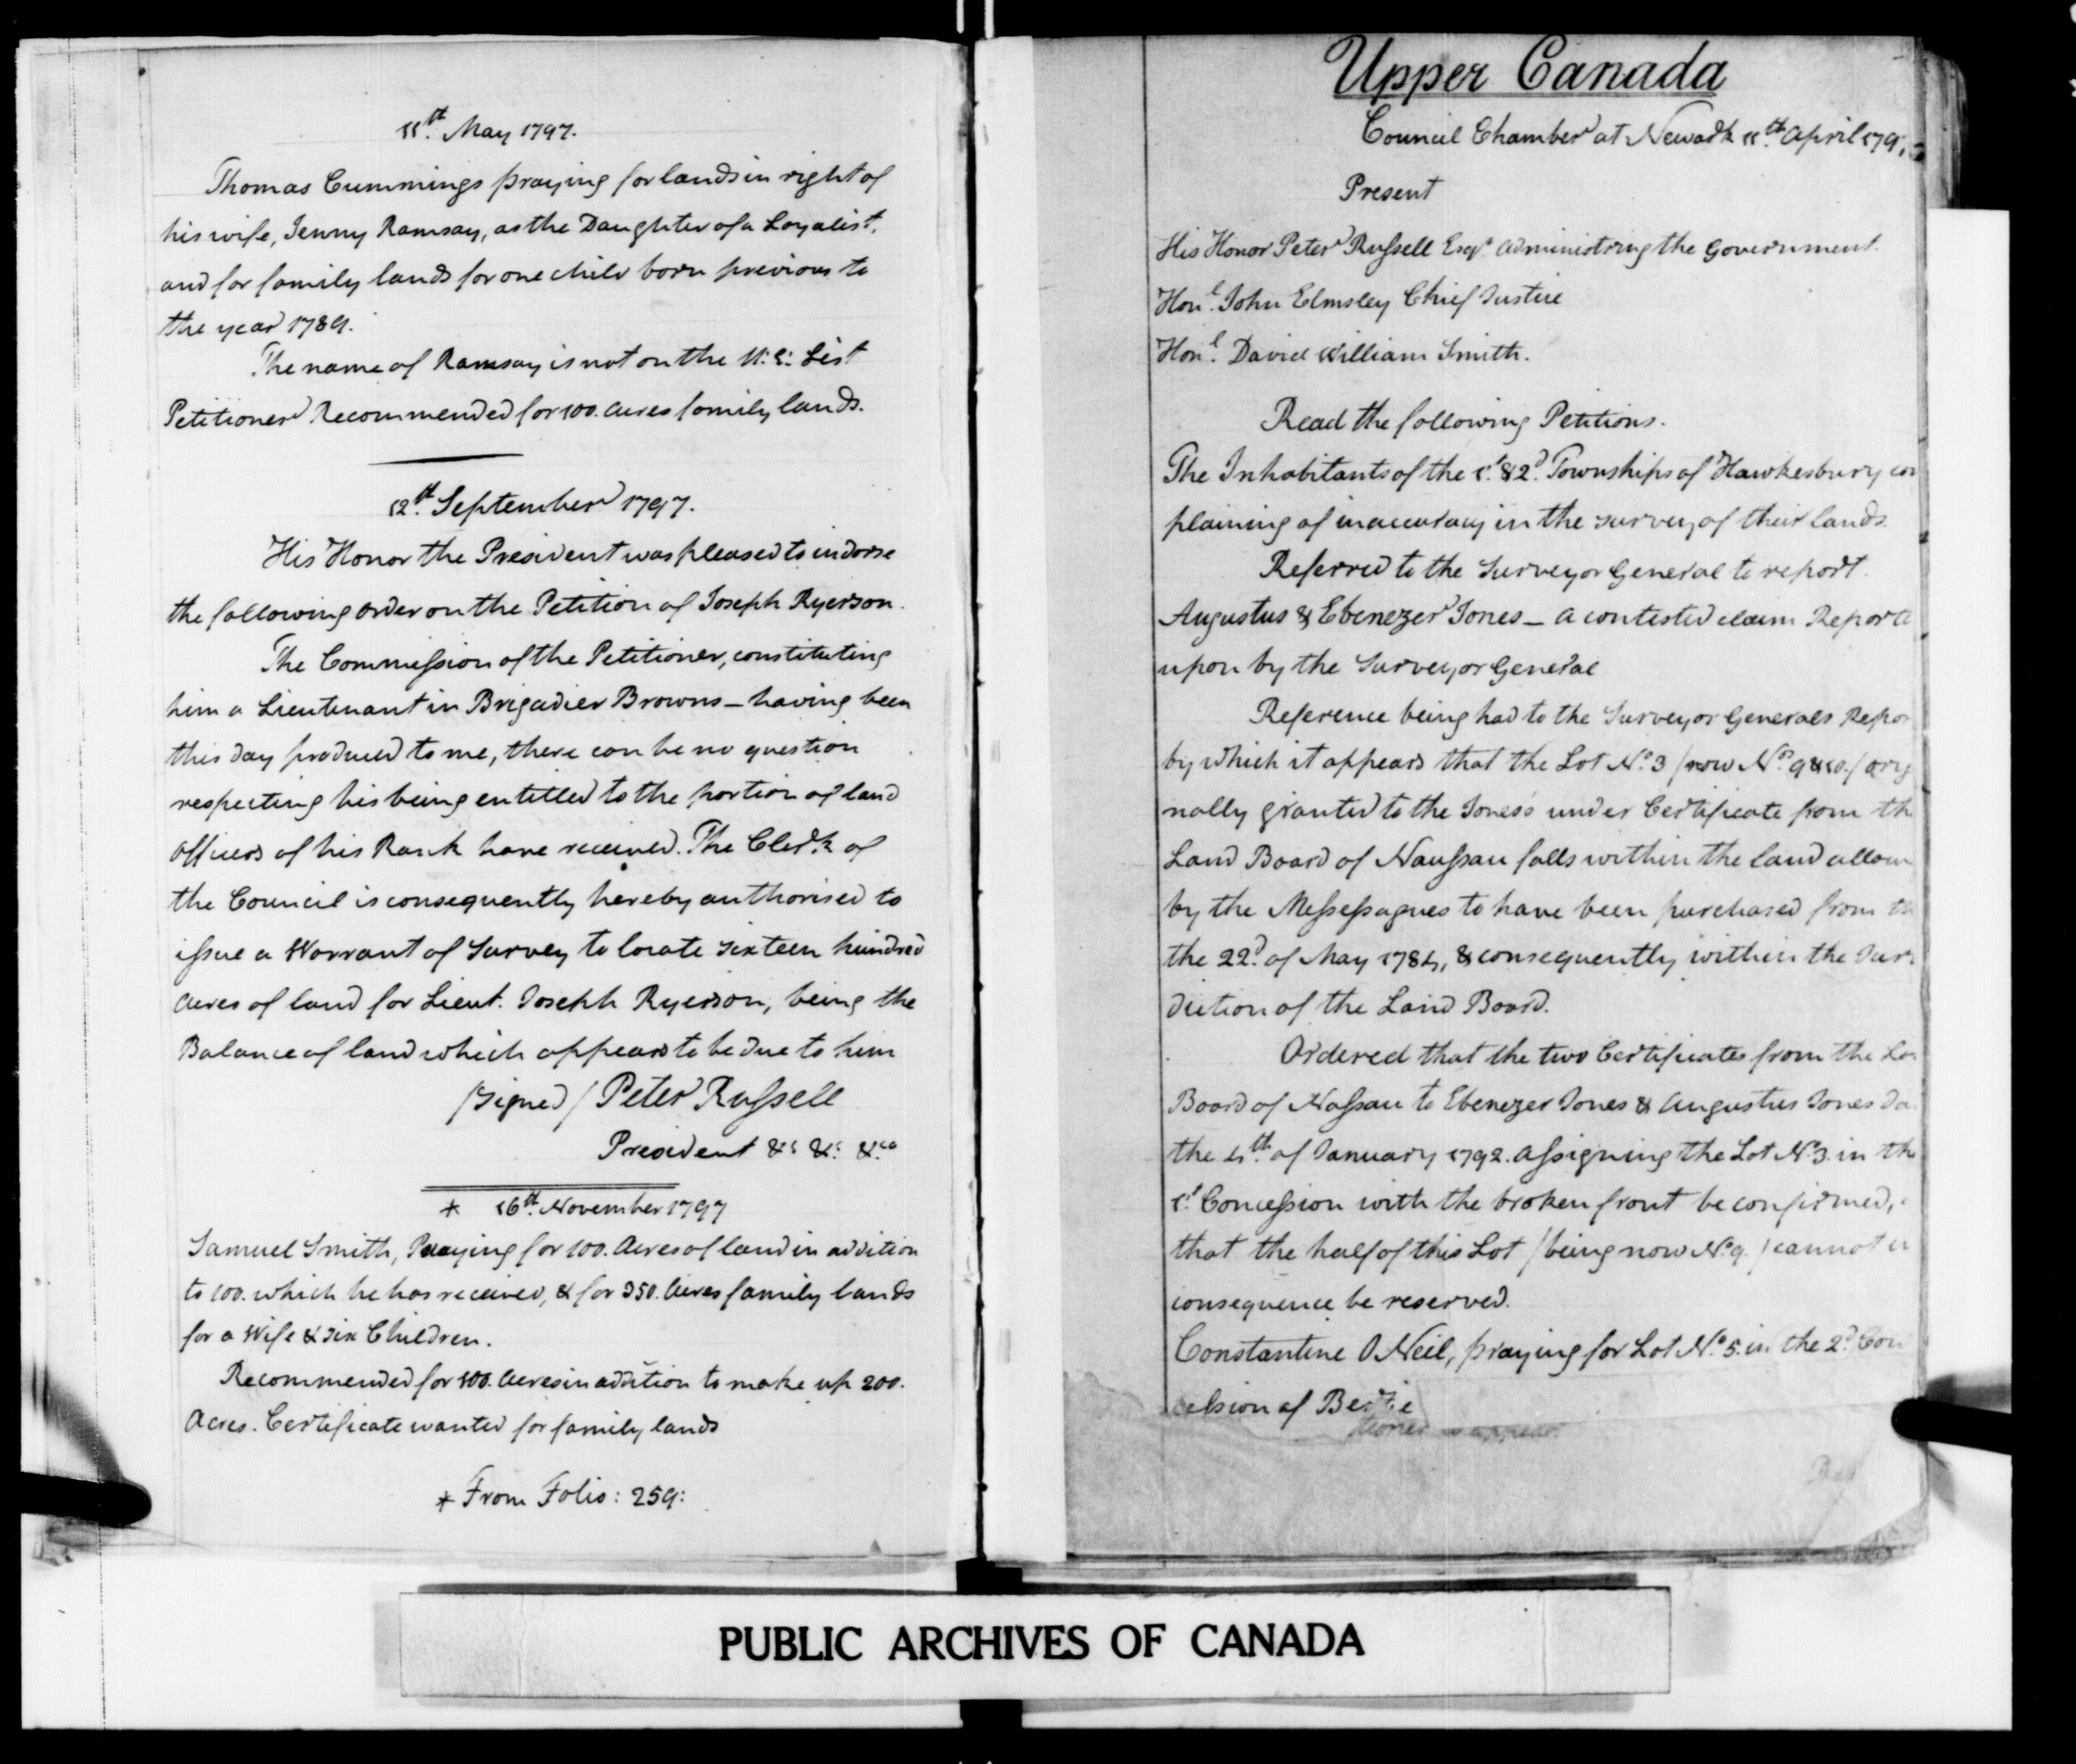 11th. May 1797.
Thomas Cummings praying for lands in right of
his wife, Jenny Ramsay, as the Daughter of a Loyalist,
and for family lands for one child born previous to
the year 1789.
The name of Ramsay is not on the U: E: List
Petitioner Recommended for 100. acres family lands.
12th. September 1797.
His Honor the President was pleased to indorse
the following order on the Petition of Joseph Ryerson.
The Commission of the Petitioner, constituting
him a Lieutenant in Brigadier Browns – having been
this day produced to me, there can be no question
respecting his being entitled to the portion of land
officers of his Rank have received. The Clerk of
the Council is consequently hereby authorised to
issue a Warrant of Survey to locate sixteen hundred
acres of land for Lieut. Joseph Ryerson, being the
Balance of land which appears to be due to him
/signed/ Peter Russell
President &c &c: &ca
* 16th. November 1797
Samuel Smith, Praying for 100. Acres of land in addition
to 100. which he has received, & for 350. Acres family lands
for a Wife & six Children.
Recommended for 100. Acres in addition to make up 200.
Acres. Certificate wanted for family lands
* From Folio: 259:
Upper Canada
Council Chamber at Newark 11th. April 179
Present
His Honor Peter Russell Esqr. administring the Government.
Honl. John Elmsley Chief Justice
Honl. David William Smith.
Read the following Petitions.
The Inhabitants of the 1t. & 2d. Townships of Hawkesbury com
plaining of inaccuracy in the survey of their lands.
Referred to the Surveyor General to report.
Augustus & Ebenezer Jones – a contested claim Reporte
upon by the Surveyor General
Reference being had to the Surveyor Generals Repor
by which it appears that the Lot No. 3 /now Nos. 9 & 10./ orig
nally granted to the Jones's under Certificate from th
Land Board of Naussau falls within the land allow
by the Messessagues to have been purchased from th
the 22d. of May 1784, & consequently within the Juri
diction of the Land Board.
Ordered that the two Certificates from the La
Board of Nassau to Ebenezer Jones & Augustus Jones da
the 4th. of January 1792. assigning the Lot No. 3. in th
1t. Concession with the broken front be confirmed,
that the half of this Lot /being now No. 9./ cannot
consequence be reserved.
Constantine O Neil, praying for Lot No. 5. in the 2d. Con
cession of Bertie
appear
PUBLIC ARCHIVES OF CANADA